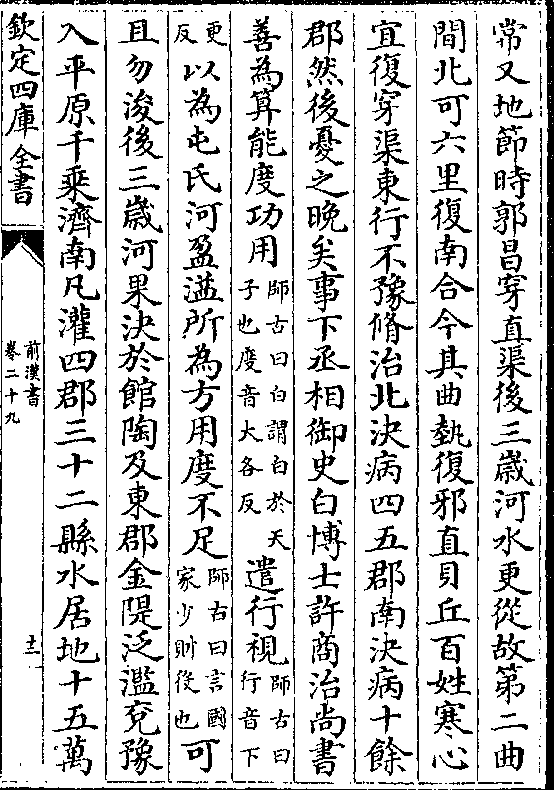 常又地節時郭昌穿直渠後三歳河水更從故第二曲
間北可六里復南合今其曲埶復邪直貝丘百姓寒心
宜復穿渠東行不豫脩治北決病四五郡南決病十餘
郡然後憂之晚矣事下丞相御史白博士許商治尚書
善為算能度功用師古曰白謂白於天子也度音大各反遣行視師古曰行音下
更反以為屯氏河盈溢所為方用度不足師古曰言國家少則役也可
且勿浚後三歳河果決於館陶及東郡金隄泛濫兗豫
入平原千乘濟南凡灌四郡三十二縣水居地十五萬
欽定四庫全書
前漢書
卷二十九
十三